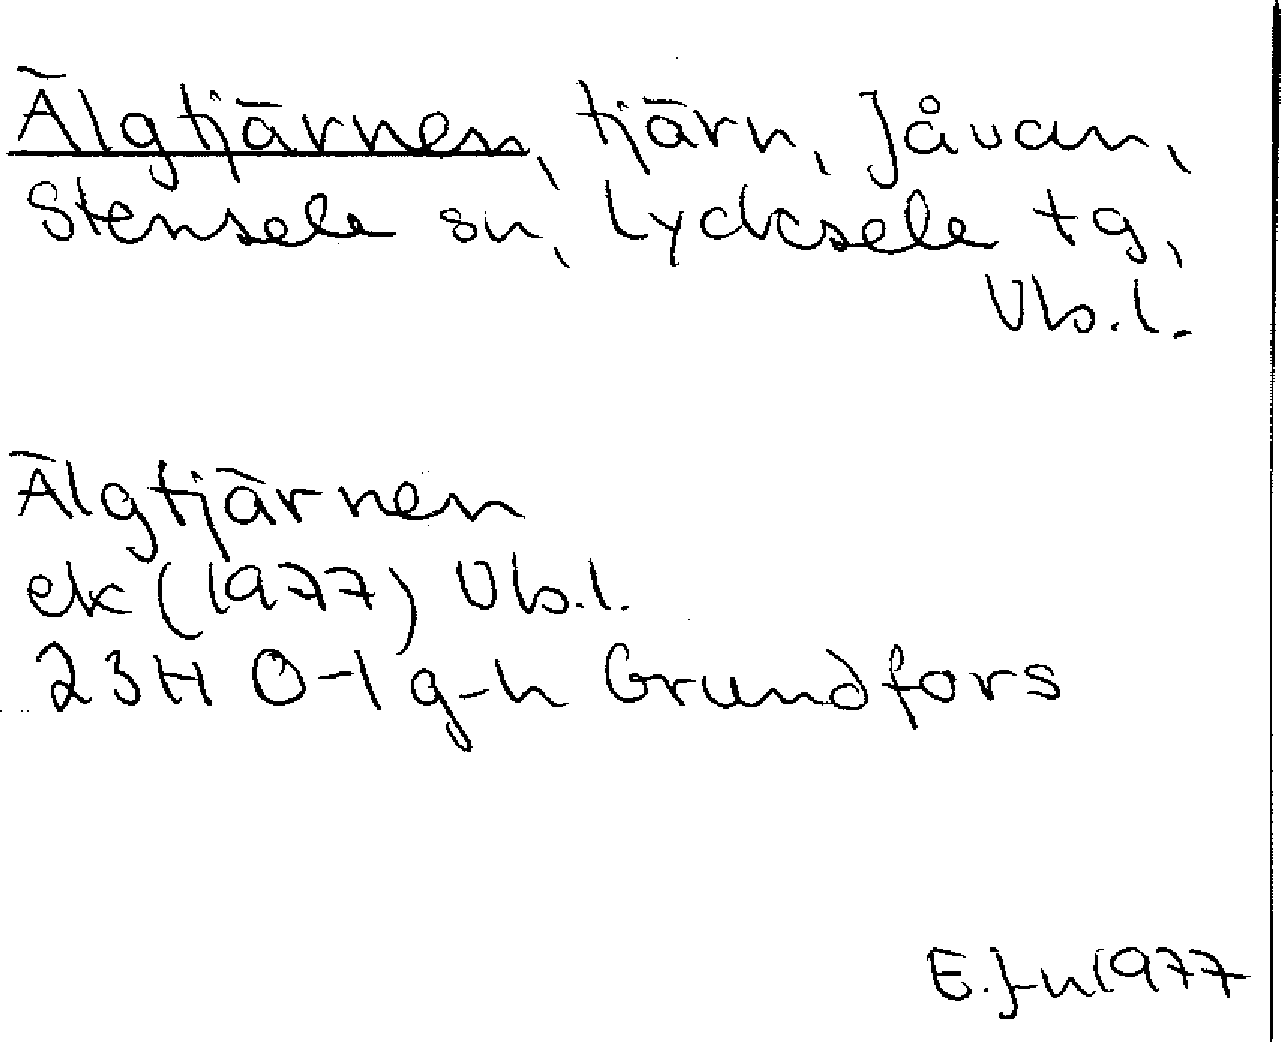 Älgtjärnen, tjärn, Jåvan,
Stensele sn, Lycksele tg,
Vb.l.
Älgtjärnen
ek (1977) Vb.l.
23H 0-1 g-h Grundfors
E. 1977